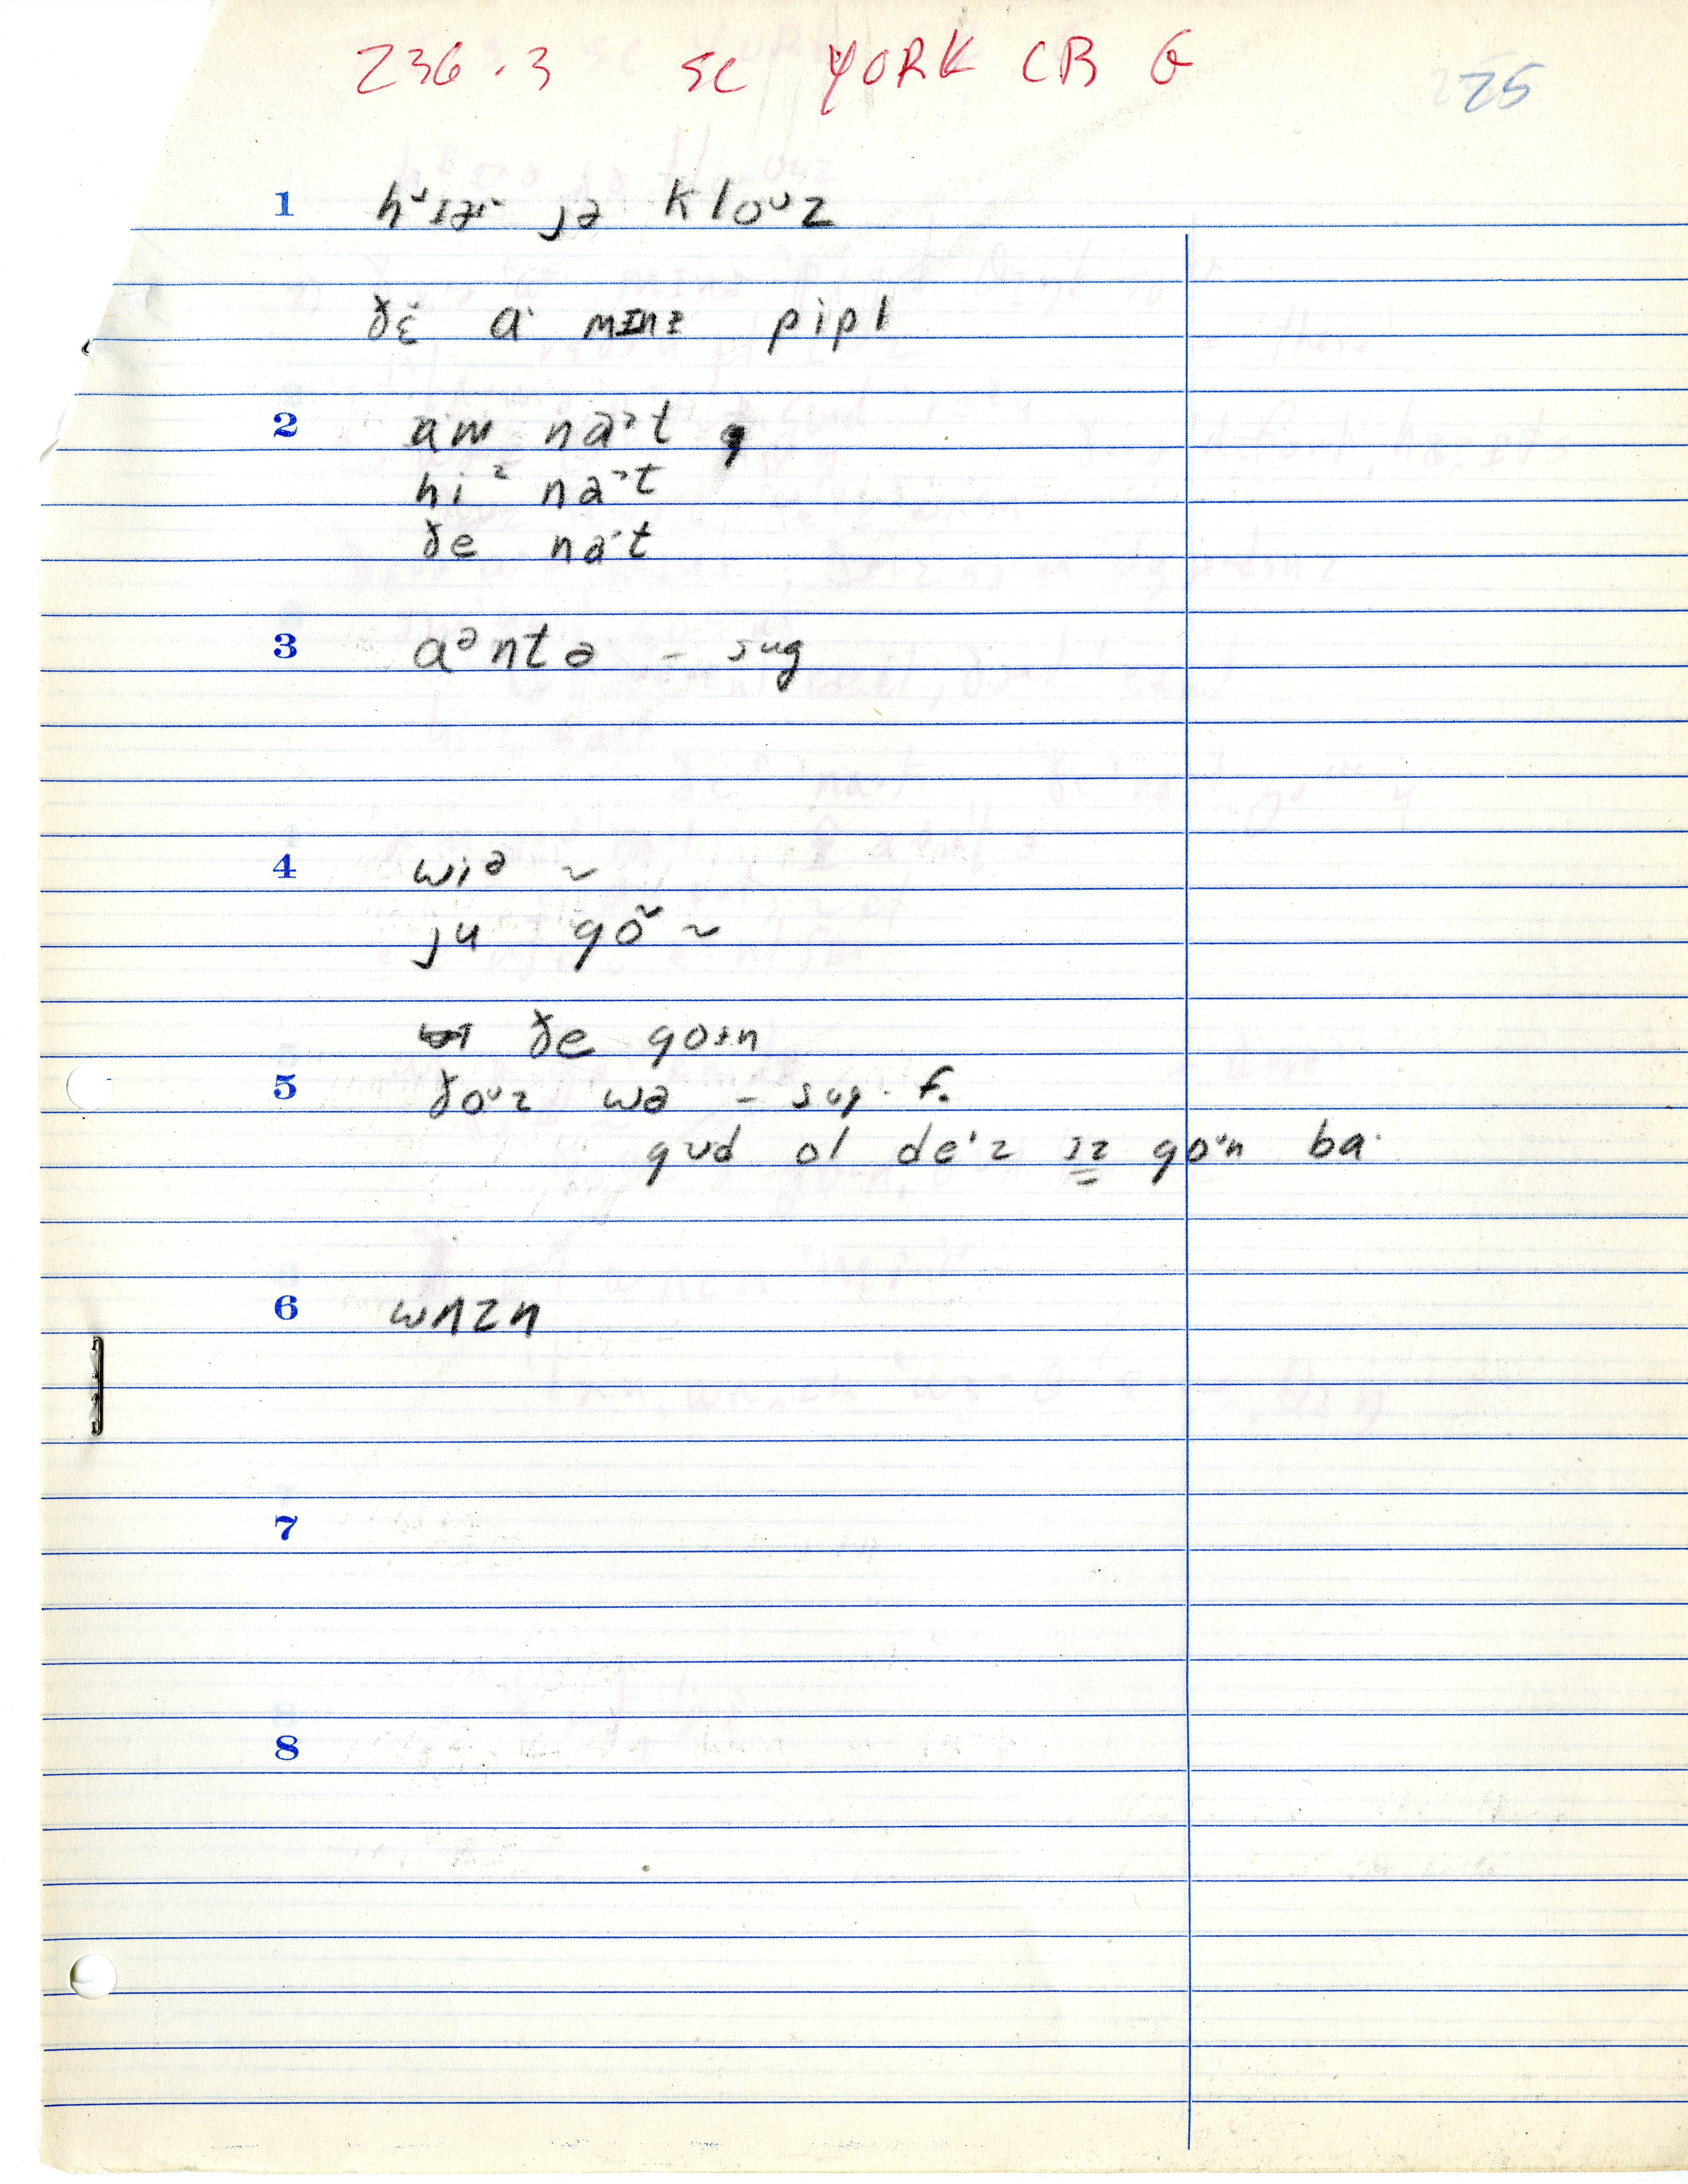 236.3 SC YORK CB G 25
1 jə kloᶷz
ðɛ̆ aˑ mɪnz pipl
2 naˑᵊt
hiᵊ naˑᵊt
ðe naˑt
3 aᵊntə – sug
4 wiᵊ ~
ju gõ ~
ðe goɪn
5 ðoᶷz wə – sug. f.
gud ol deᶦz ɪz goᶷn baˑ
6 wʌzn
7
8